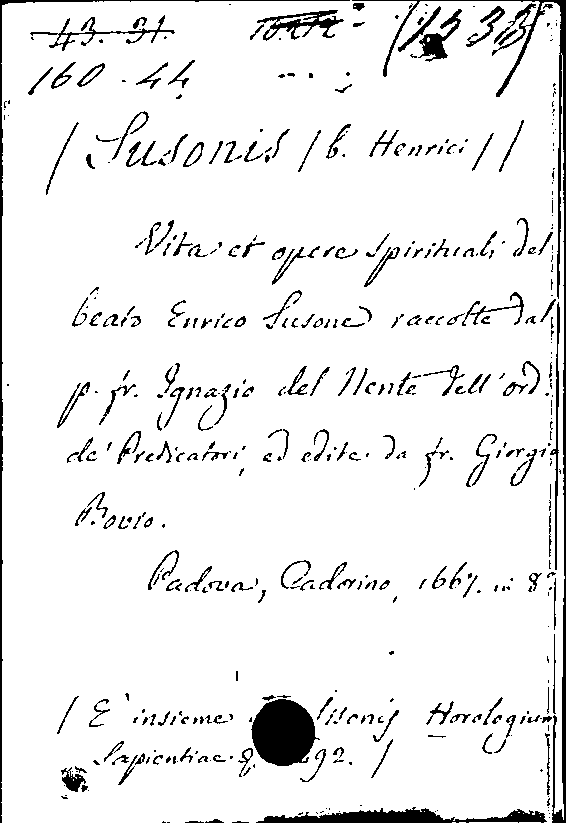 43. 31. (1533)
160. 44
/ Susonis / b. Henrici / /
Vita et opere spirituali del
beato Enrico Susone raccolte dal
p. fr. Ignazio del Nente dell'ord.
de' Predicatori, ed edite da fr. Giorgio
Bovio.
Padova, Cadorino, 1667. in 8°
/ E' insieme Horologium
Sapientiae 92. /